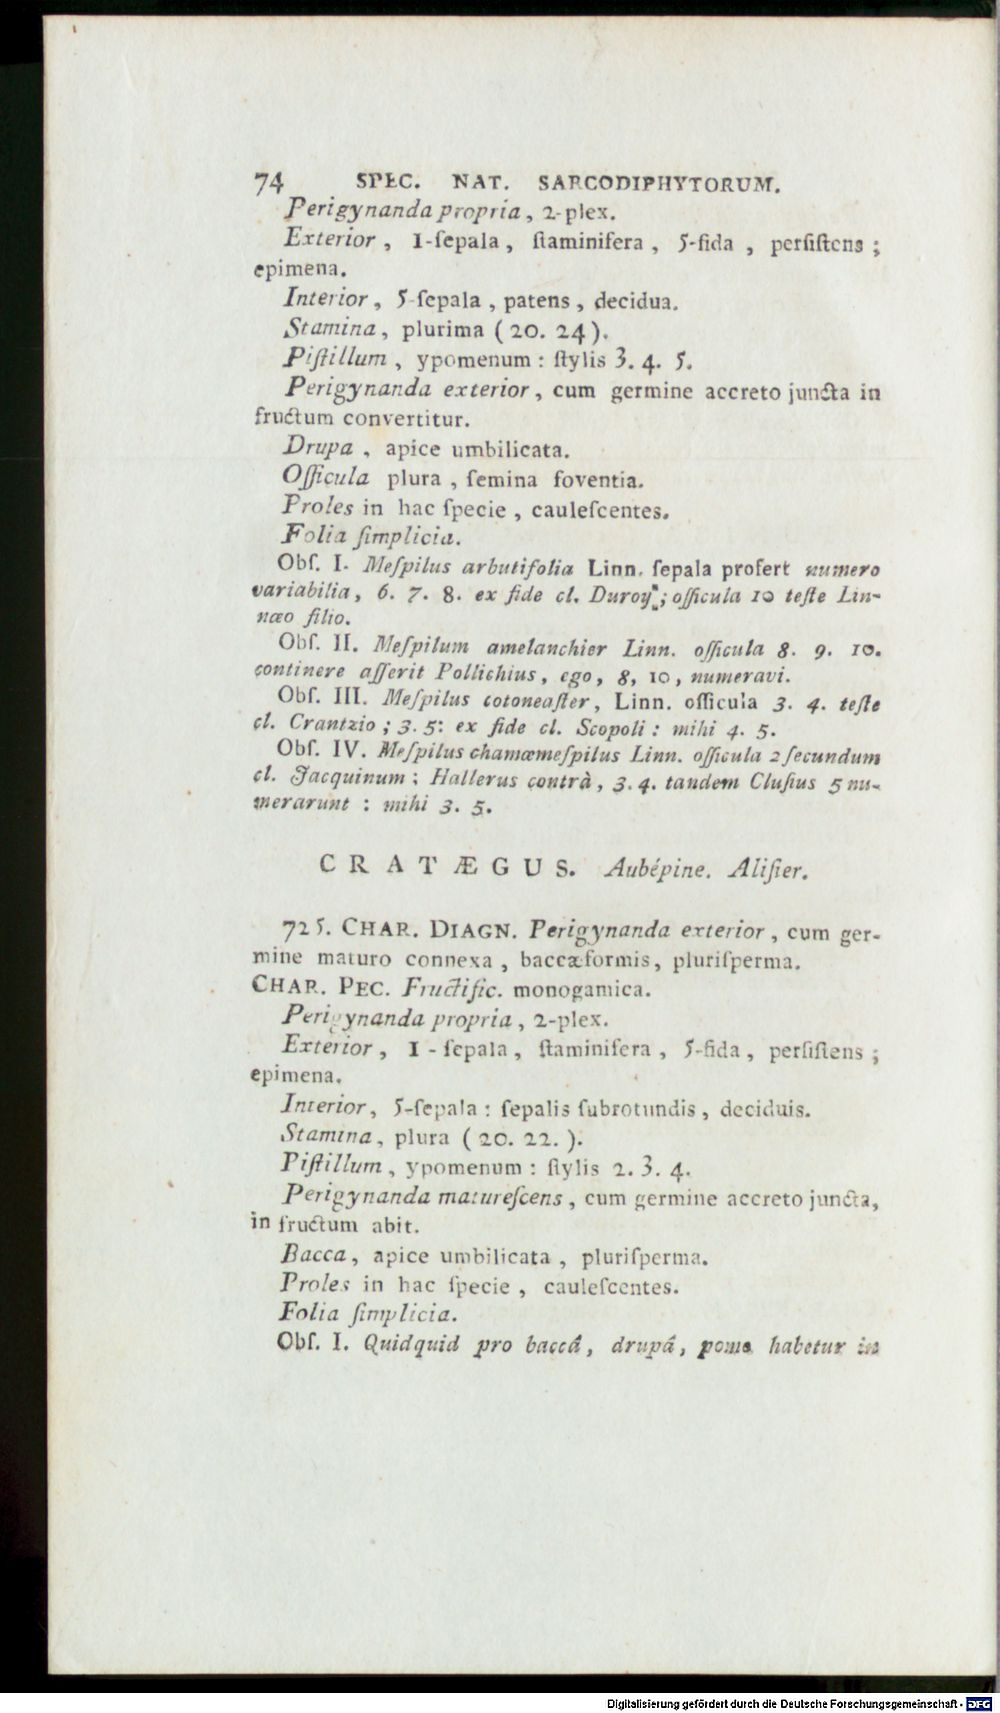 74 SPEC. NAT. SARCODIPHYTORUM.
Perigynanda propria, 2-plex.
Exterior, 1-ſepala, ſtaminifera, 5-fida, perſiſtens;
epimena.
Interior, 5-ſepala, patens, decidua.
Stamina, plurima (20. 24).
Piſtillum, ypomenum : ſtylis 3. 4. 5.
Perigynanda exterior, cum germine accreto juncta in
fructum convertitur.
Drupa, apice umbilicata.
Officula plura, ſemina foventia.
Proles in hac ſpecie, cauleſcentes.
Folia ſimplicia.
Obſ. I. Meſpilus arbutifolia Linn. ſepala profert numero
variabilia, 6. 7. 8. ex fide cl. Duroy; officula 10 teſte Lin-
næo filio.
Obſ. II. Meſpilum amelanchier Linn. officula 8. 9. 10.
continere aſſerit Pollichius, ego, 8, 10, numeravi.
Obſ. III. Meſpilus cotoneaſter, Linn. officula 3. 4. teſte
cl. Crantzio ; 3. 5: ex fide cl. Scopoli : mihi 4. 5.
Obſ. IV. Meſpilus chamæmeſpilus Linn. officula 2 ſecundum
cl. Jacquinum ; Hallerus contrà, 3. 4. tandem Cluſius 5 nu-
merarunt : mihi 3. 5.
CRATÆGUS. Aubépine. Aliſier.
725. CHAR. DIAGN. Perigynanda exterior, cum ger-
mine maturo connexa, baccæformis, pluriſperma.
CHAR. PEC. Fructific. monogamica.
Perigynanda propria, 2-plex.
Exterior, 1-ſepala, ſtaminifera, 5-fida, perſiſtens ;
epimena.
Interior, 5-ſepala : ſepalis ſubrotundis, deciduis.
Stamina, plura (20. 22.).
Piſtillum, ypomenum : ſtylis 2. 3. 4.
Perigynanda matureſcens, cum germine accreto juncta,
in fructum abit.
Bacca, apice umbilicata, pluriſperma.
Proles in hac ſpecie, cauleſcentes.
Folia ſimplicia.
Obſ. I. Quidquid pro baccâ, drupâ, pomo habetur in
Digitalisierung gefördert durch die Deutsche Forschungsgemeinschaft - DFG